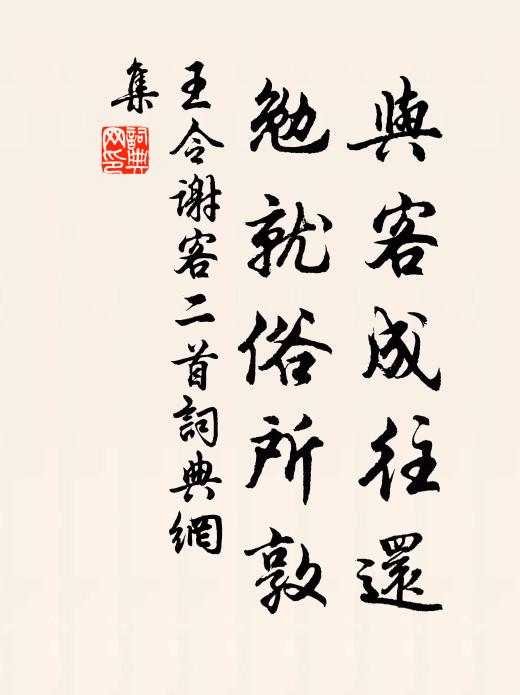 與客成往還
勉就俗所敦
王令謝客二首詞典網
集
詞典
网印